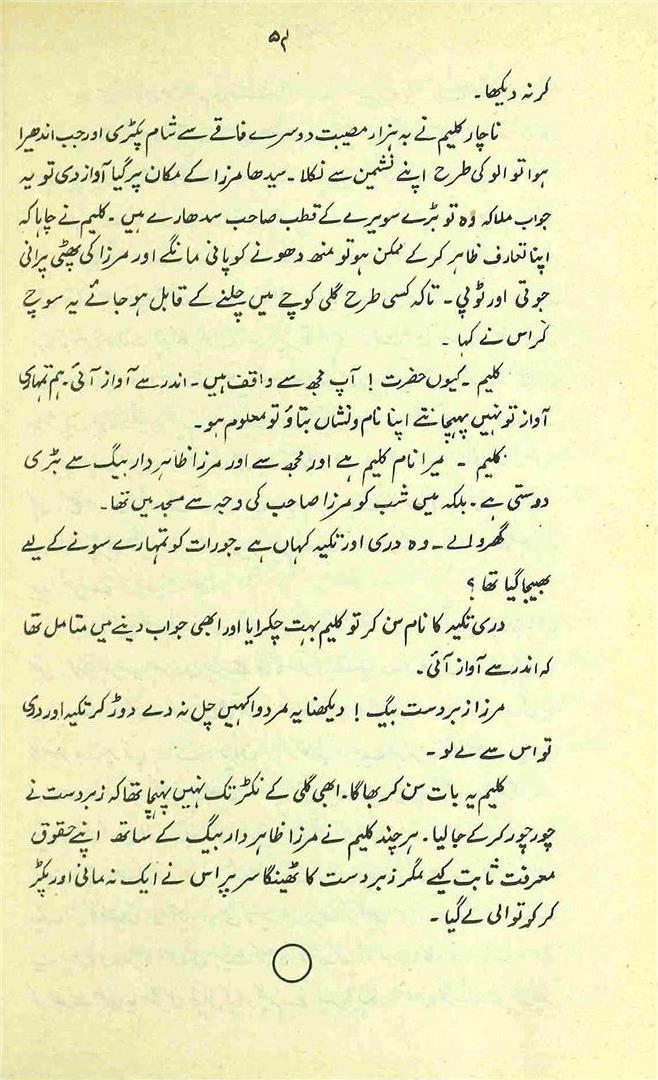 ۵۲
کر نہ دیکھا۔
ناچار کلیم نے بہ ہزار مصیبت دوسرے فاقے سے شام پکڑی اور جب اندھیرا
ہوا تو الو کی طرح اپنے نشیمن سے نکلا۔ سیدھا مرزا کے مکان پر گیا آواز دی تو یہ
جواب ملا کہ وہ تو بڑے سویرے کے قطب صاحب سدھارے ہیں۔ کلیم نے چاہا کہ
اپنا تعارف ظاہر کرکے ممکن ہو تو منھ دھونے کو پانی مانگے اور مرزا کی پھٹی پرانی
جوتی اور ٹوپی۔ تاکہ کسی طرح گلی کوچے میں چلنے کے قابل ہو جائے یہ سوچ
کر اس نے کہا۔
کلیم۔ کیوں حضرت! آپ مجھ سے واقف ہیں۔ اندر سے آواز آئی۔ ہم تمہاری
آواز تو نہیں پہچانتے اپنا نام و نشاں بتاؤ تو معلوم ہو۔
کلیم ۔ میرا نام کلیم ہے اور مجھ سے اور مرزا ظاہر دار بیگ سے بڑی
دوستی ہے۔ بلکہ میں شب کو مرزا صاحب کی وجہ سے مسجد میں تھا۔
گھر والے۔ وہ دری اور تکیہ کہاں ہے۔ جو رات کو تمہارے سونے کے لیے
بھیجا گیا تھا؟
دری تکیہ کا نام سن کر تو کلیم بہت چکرایا اور ابھی جواب دینے میں متامل تھا
کہ اندر سے آواز آئی۔
مرزا زبردست بیگ! دیکھنا یہ مردوا کہیں چل نہ دے دوڑ کر تکیہ اور دری
تو اس سے لے لو۔
کلیم یہ بات سن کر بھاگا۔ ابھی گلی کے نکڑ تک نہیں پہنچا تھا کہ زبردست نے
چور چور کرکے جا لیا۔ ہر چند کلیم نے مرزا ظاہر دار بیگ کے ساتھ اپنے حقوق
معرفت ثابت کیے مگر زبردست کا ٹھینگا سر پر اس نے ایک نہ مانی اور پکڑ
کر کوتوالی لے گیا۔